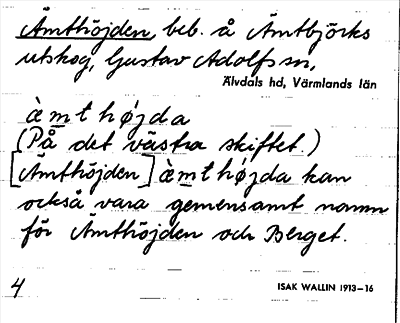 Ämthöjden, beb. å Ämtbjörks
utskog, Gustav Adolfs sn,
Älvdals hd, Värmlands län
àm̲t hǿjda
(På det västra skiftet.)
[Ämthöjden] àm̲t hǿjda kan
också vara gemensamt namn
för Ämthöjden och Berget.
4
ISAK WALLIN 1913–16